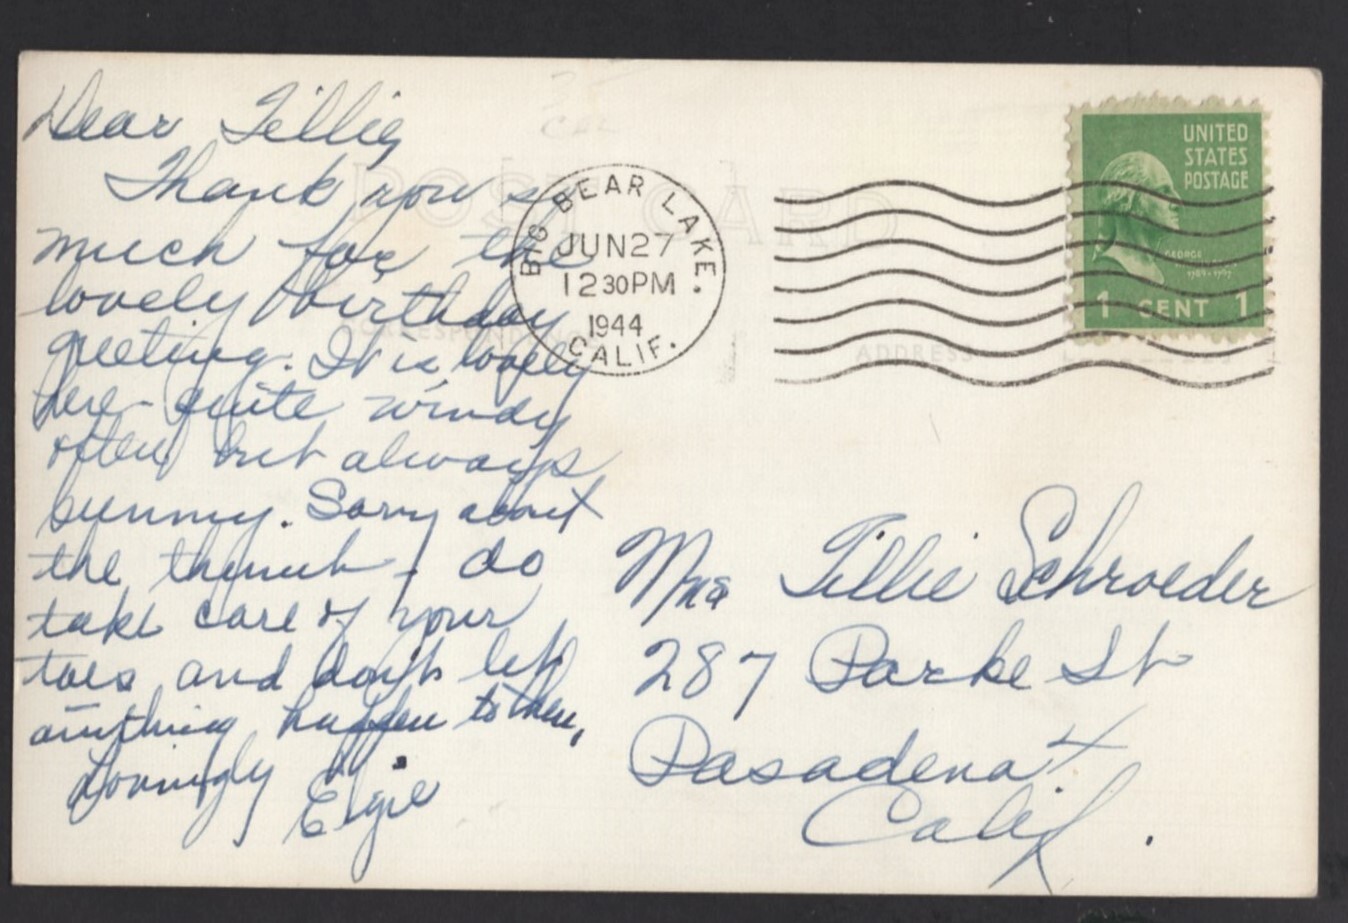 Dear Tillie
Thank you so
much for the
lovely birthday
greeting. It is lovely
here - quite windy
often but always
sunny. Sorry about
the thumb - do
take care of your
toes and don't let
anything happen to them,
Lovingly Elgie
POST CARD
CORRESPONDENCE
ADDRESS
BIG BEAR LAKE.
JUN 27
12 30 PM
1944
CALIF.
UNITED
STATES
POSTAGE
GEORGE
1 CENT 1
Mrs Tillie Schroeder
287 Parke St
Pasadena 4
Calif.